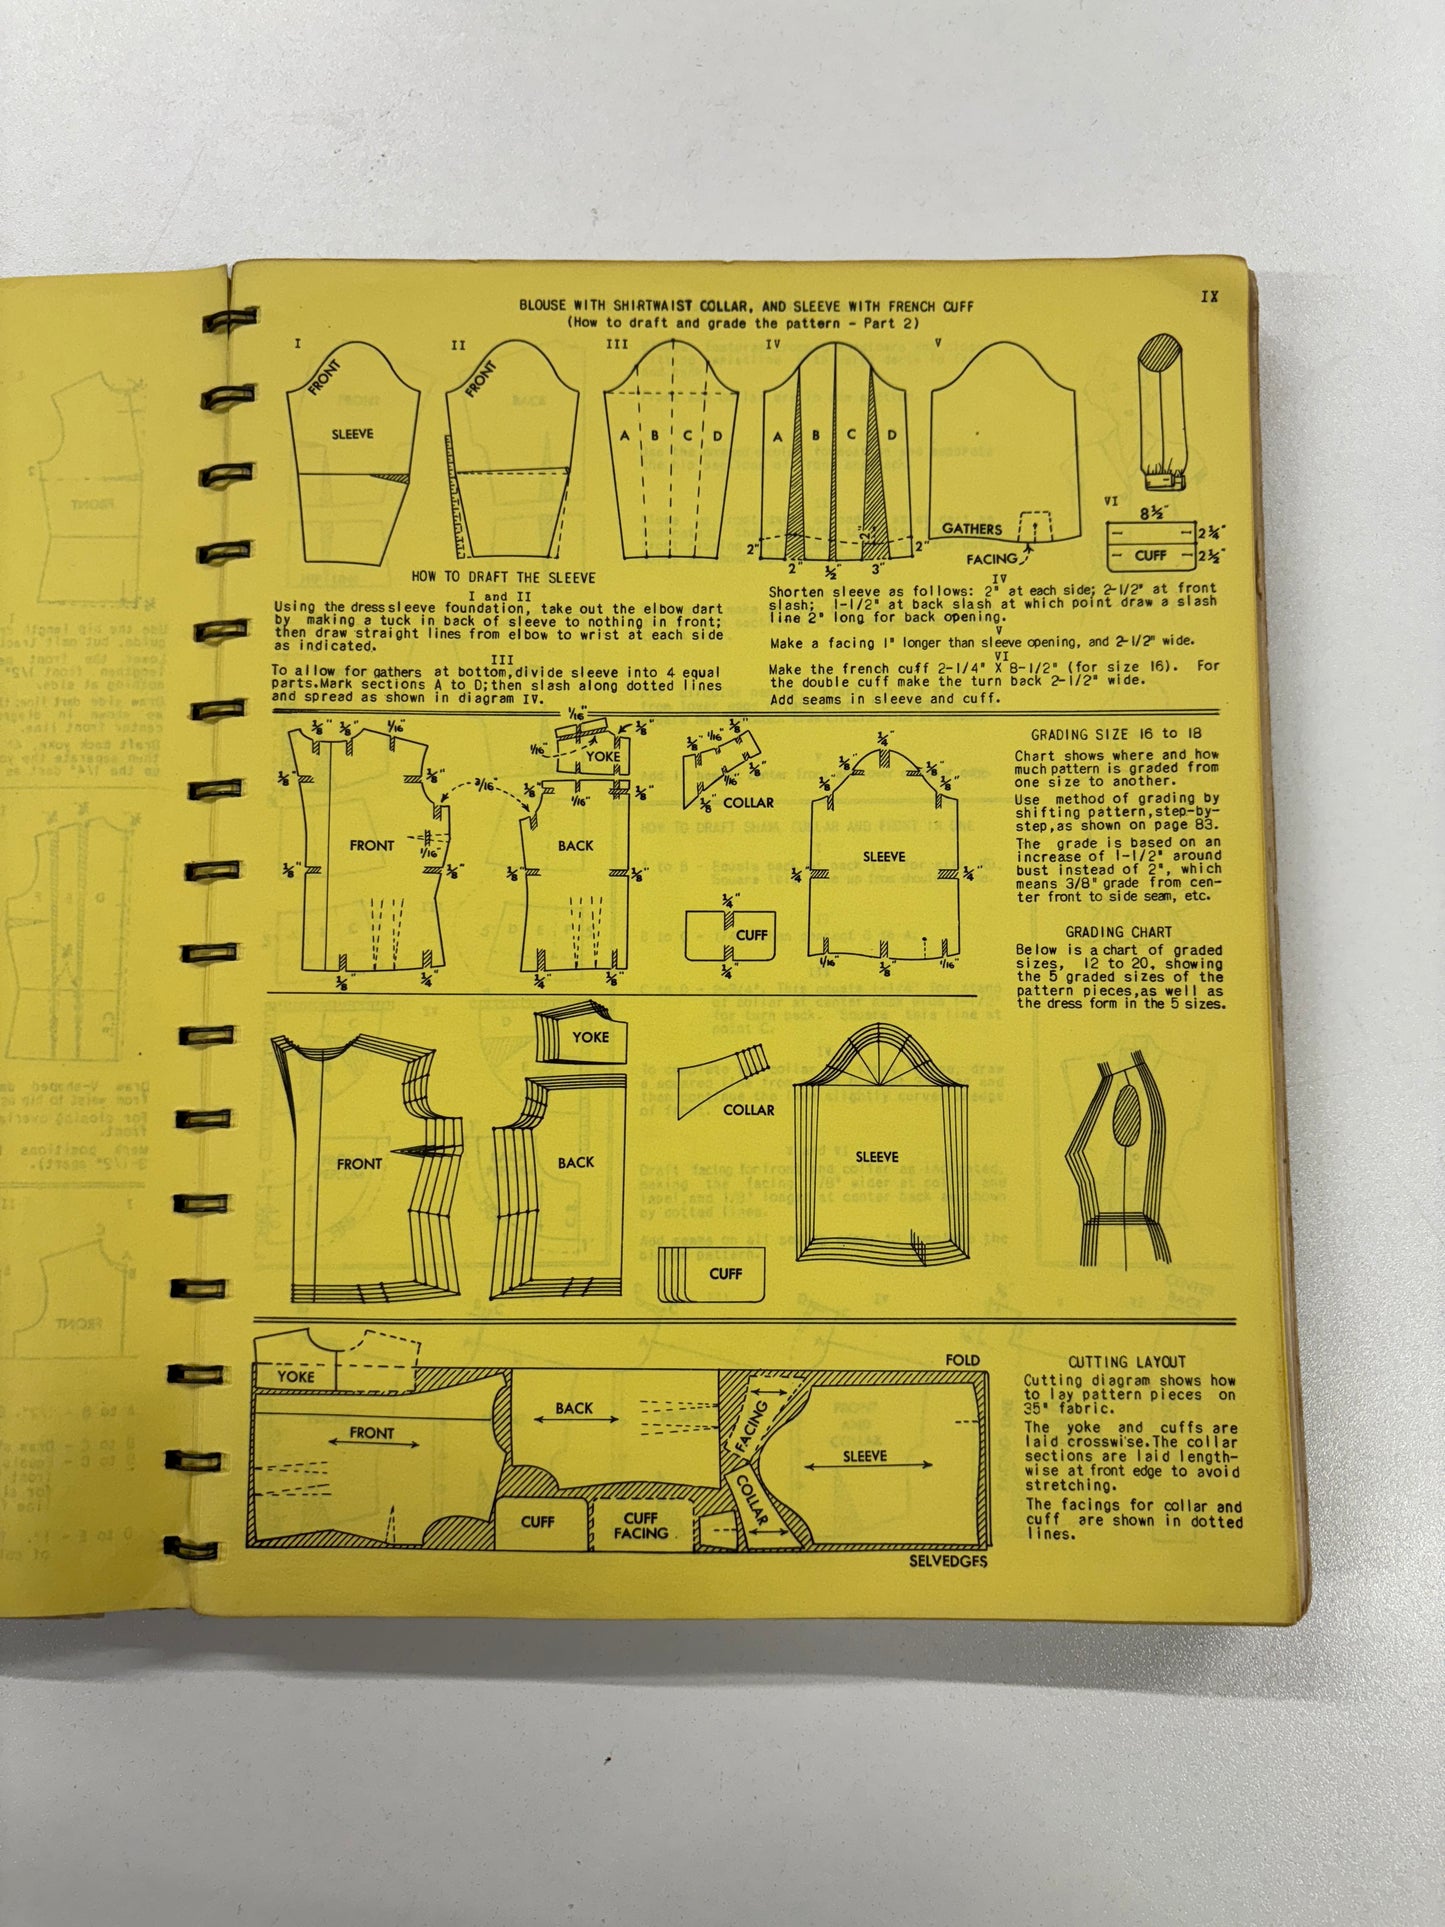 IX
BLOUSE WITH SHIRTWAIST COLLAR, AND SLEEVE WITH FRENCH CUFF
(How to draft and grade the pattern - Part 2)
I
FRONT
SLEEVE
II
FRONT
III
A B C D
IV
A B C D
2"
2"
2"
2"
½"
3"
V
GATHERS
FACING
VI
8½"
2¼"
CUFF
2½"
HOW TO DRAFT THE SLEEVE
I and II
Using the dress sleeve foundation, take out the elbow dart
by making a tuck in back of sleeve to nothing in front;
then draw straight lines from elbow to wrist at each side
as indicated.
III
To allow for gathers at bottom, divide sleeve into 4 equal
parts. Mark sections A to D; then slash along dotted lines
and spread as shown in diagram IV.
IV
Shorten sleeve as follows: 2" at each side; 2-1/2" at front
slash; 1-1/2" at back slash at which point draw a slash
line 2" long for back opening.
V
Make a facing 1" longer than sleeve opening, and 2-1/2" wide.
VI
Make the french cuff 2-1/4" X 8-1/2" (for size 16). For
the double cuff make the turn back 2-1/2" wide.
Add seams in sleeve and cuff.
⅛" ⅛" 1/16"
⅛"
⅛"
3/16"
FRONT
1/16"
⅛"
⅛"
⅛"
¼"
1/16"
⅛"
1/16"
YOKE
⅛"
1/16"
⅛"
BACK
⅛"
⅛"
¼"
⅛"
⅛" 1/16" ⅛"
⅛"
⅛"
COLLAR
¼"
CUFF
¼"
¼"
⅛"
⅛"
⅛"
⅛"
SLEEVE
¼"
¼"
1/16"
⅛"
1/16"
GRADING SIZE 16 to 18
Chart shows where and how
much pattern is graded from
one size to another.
Use method of grading by
shifting pattern, step-by-
step, as shown on page 83.
The grade is based on an
increase of 1-1/2" around
bust instead of 2", which
means 3/8" grade from cen-
ter front to side seam, etc.
GRADING CHART
Below is a chart of graded
sizes, 12 to 20, showing
the 5 graded sizes of the
pattern pieces, as well as
the dress form in the 5 sizes.
FRONT
YOKE
BACK
COLLAR
CUFF
SLEEVE
YOKE
FRONT
BACK
CUFF
CUFF
FACING
FACING
COLLAR
SLEEVE
FOLD
SELVEDGES
CUTTING LAYOUT
Cutting diagram shows how
to lay pattern pieces on
35" fabric.
The yoke and cuffs are
laid crosswise. The collar
sections are laid length-
wise at front edge to avoid
stretching.
The facings for collar and
cuff are shown in dotted
lines.